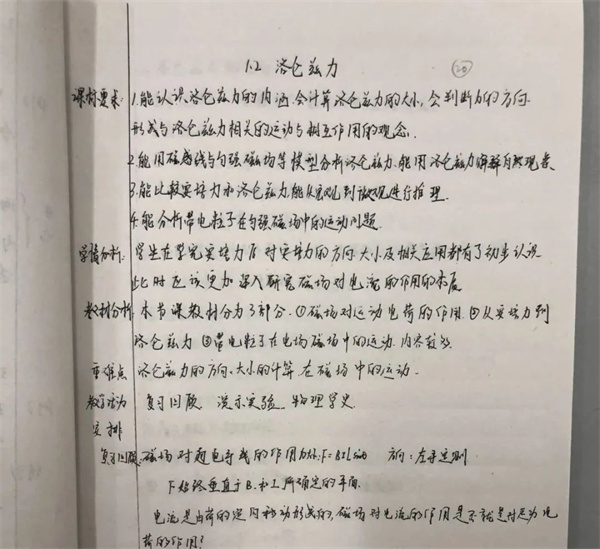 1.2 洛仑兹力
20
课标要求: 1.能认识洛仑兹力的内涵.会计算洛仑兹力的大小,会判断力的方向.
形成与洛仑兹力相关的运动与相互作用的观念.
2.能用磁感线与匀强磁场等模型分析洛仑兹力.能用洛仑兹力解释自然现象.
3.能比较安培力和洛仑兹力.能从宏观到微观进行推理.
4.能分析带电粒子在匀强磁场中的运动问题.
学情分析: 学生在学完安培力后对安培力的方向、大小及相关应用都有了初步认识
此时应该更加深入研究磁场对电流的作用的本质
教材分析: 本节课教材分为3部分.①磁场对运动电荷的作用.②从安培力到
洛仑兹力 ③带电粒子在电场磁场中的运动.内容较多.
重难点 洛仑兹力的方向、大小的计算 在磁场中的运动.
教学活动 复习回顾 演示实验. 物理学史.
安排
复习回顾: 磁场对通电导线的作用力大小:F=BILsinθ 方向:左手定则
F始终垂直于B.和I所确定的平面.
电流是由电荷的定向移动形成的,磁场对电流的作用是不是就是对运动电
荷的作用?